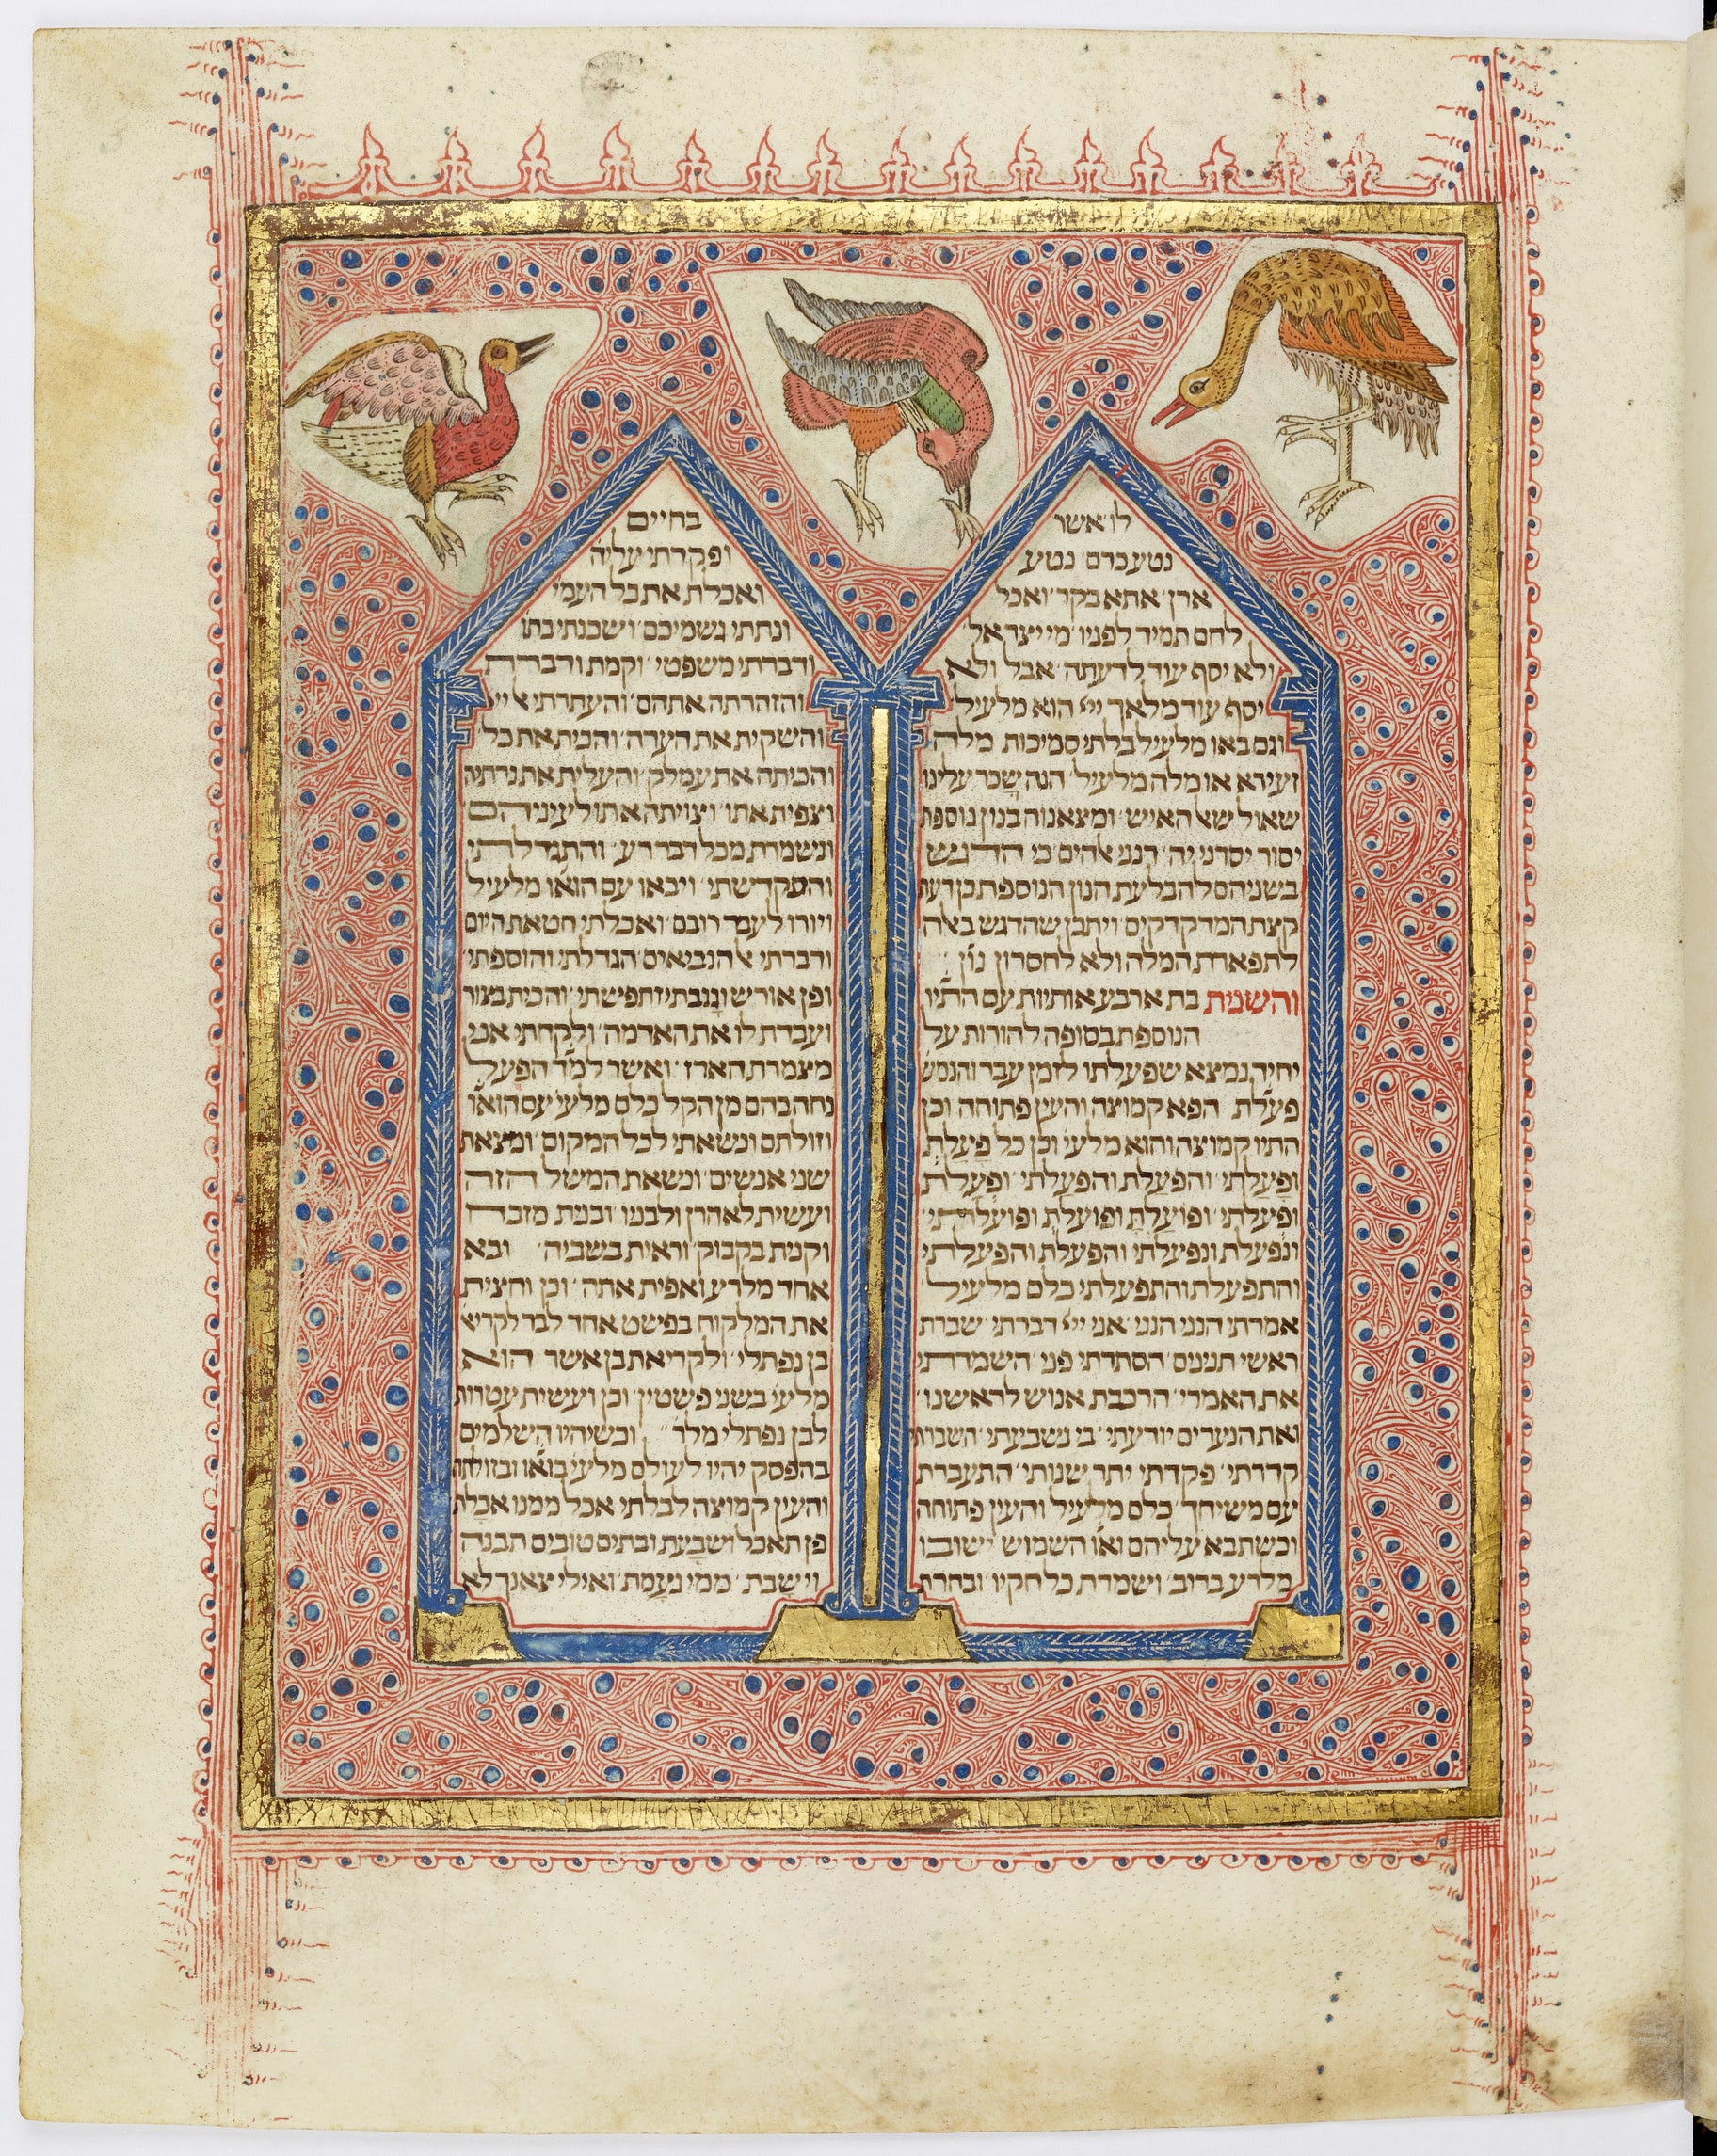 לו אשר
נטעכרם נטע
ארן אתא בקר ואכל
לחם תמיד לפניו מי יצר אל
ולא יסף עוד לדעתה אבל ולא
יסף עוד מלאך ייי הוא מלעיל
וגם באו מלעיל בלתי סמיכות מלה
זעירא או מלה מלעיל הנה שכר עלינו
שאול שאל האיש ומצאנוה בנון נוספת
יסור יסרני יה דנני אלהים כי הדגש
בשניהם להבלעת הנון הנוספת כן דעת
קצת המדקדקים ויתכן שהדגש בא לה
לתפארת המלה ולא לחסרון נון
והשנית בת ארבע אותיות עם התיו
הנוספת בסופה להורות על
יחיד נמצא שפעלתו לזמן עבר והנמש
פעלת הפא קמוצה והעין פתוחה וכן
התיו קמוצה והוא מלעי וכן כל פעלת
ופעלתי והפעלת והפעלתי ופעלת
ופעלתי ופועלת ופועלת ופועלתי
ונפעלת ונפעלתי והפעלת והפעלתי
והתפעלת והתפעלתי כלם מלעיל
אמרתי הנני הנני אני ייי דברתי שברת
ראשי תנינים הסתרתי פני השמדתי
את האמרי הרכבת אנוש לראשנו
ואת הנערים יודעתי בי נשבעתי השבות
קדרתי פקדתי יתר שנותי התעברת
עם משיחך כלם מלעיל והעין פתוחה
וכשתבא עליהם ואו השמוש ישובו
מלרע ברוב ושמרת כל חקיו ובחרת
בחיים
ופקדתי עליה
ואכלת את כל העמי
ונתתי גשמיכם ושכנתי בתו
ודברתי משפטי וקמת ודברת
והזהרתה אתהם והעתרתי אל ייי
והשקית את העדה והכית את כל
והכיתה את עמלק והעלית את נרתיה
וצפית אתו וצויתה אתו לעיניהם
ונשמרת מכל דבר רע והתגדלתי
והתקדשתי ויבאו עם הואו מלעיל
ויורו לעמד רובם ואכלתי חטאת היום
ודברתי אל הנביאים הגדלתי והוספתי
ופן אורש וגנבתי ותפישתי והכית בצור
ועבדת לו את האדמה ולקחתי אני
מצמרת הארז ואשר למד הפעל
נחה בהם מן הקל כלם מלעי עם הואו
וזולתם ונשאתי לכל המקום ומצאת
שני אנשים ונשאת המשל הזה
ועשית לאהרן ולבניו ובנית מזבח
וקנית בקבוק וראית בשביה ובא
אחד מלרע ואפית אתה וכן וחצית
את המלקוח בפשט אחד לבד לקריא
בן נפתלי ולקריאת בן אשר הוא
מלעי בשני פשטין וכן ועשית עטרות
לבן נפתלי מלר וכשיהיו השלמים
בהפסק יהיו לעולם מלעי בואו ובזולתו
והעין קמוצה לבלתי אכל ממנו אכלת
פן תאכל ושבעת ובתים טובים תבנה
וישבת ממי נעמת ואולי צאנך לא